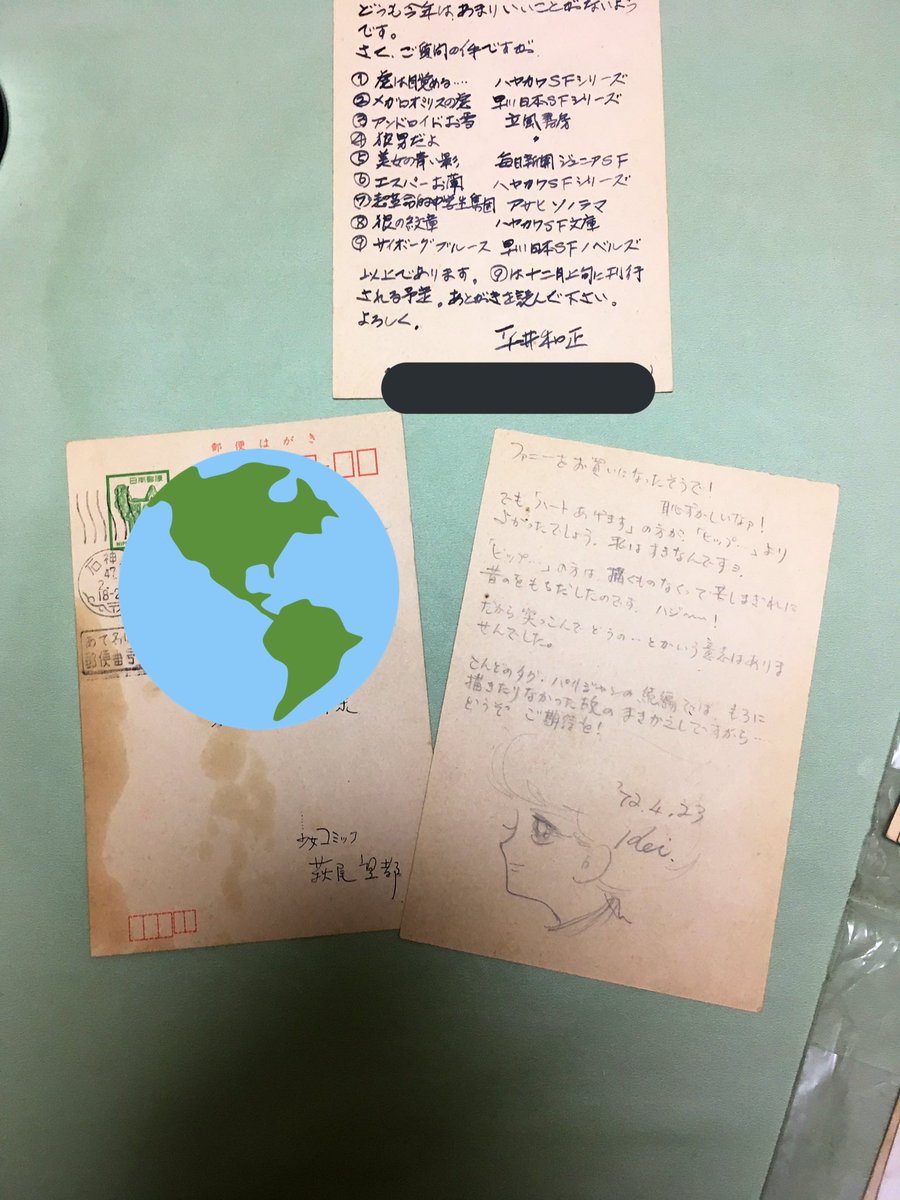 どうも今年は、あまりいいことがないよう
です。
さて、ご質問の件ですが、
① 虎は目覚める… ハヤカワSFシリーズ
② メガロポリスの虎 早川日本SFシリーズ
③ アンドロイドお雪 立風書房
④ 狼男だよ 〃
⑤ 美女の青い影 毎日新聞ジュニアSF
⑥ エスパーお蘭 ハヤカワSFシリーズ
⑦ 超革命的中学生集団 アサヒソノラマ
⑧ 狼の紋章 ハヤカワSF文庫
⑨ サイボーグブルース 早川日本SFノベルズ
以上であります。⑨は十二月上旬に刊行
される予定。あとがきを読んで下さい。
よろしく。
平井和正
郵便はがき
日本郵便
石神
47.
18-2
あて名に
郵便番号
少女コミック
萩尾望都
ファニーをお買いになったそうで!
恥ずかしいなァ!
でも、「ハートあげます」の方が、「ビップ…」より
よかったでしょう。私はすきなんですヨ。
「ビップ…」の方は、描くものなくって苦しまぎれに
昔のをもちだしたのです。ハジ〜〜!
だから突っこんでどうの…とかいう意志はありま
せんでした。
こんどのタグ・パリジャンの続編では、もろに
描きたりなかった故のまきかえしですから…
どうぞ、ご期待を!
'72.4.23